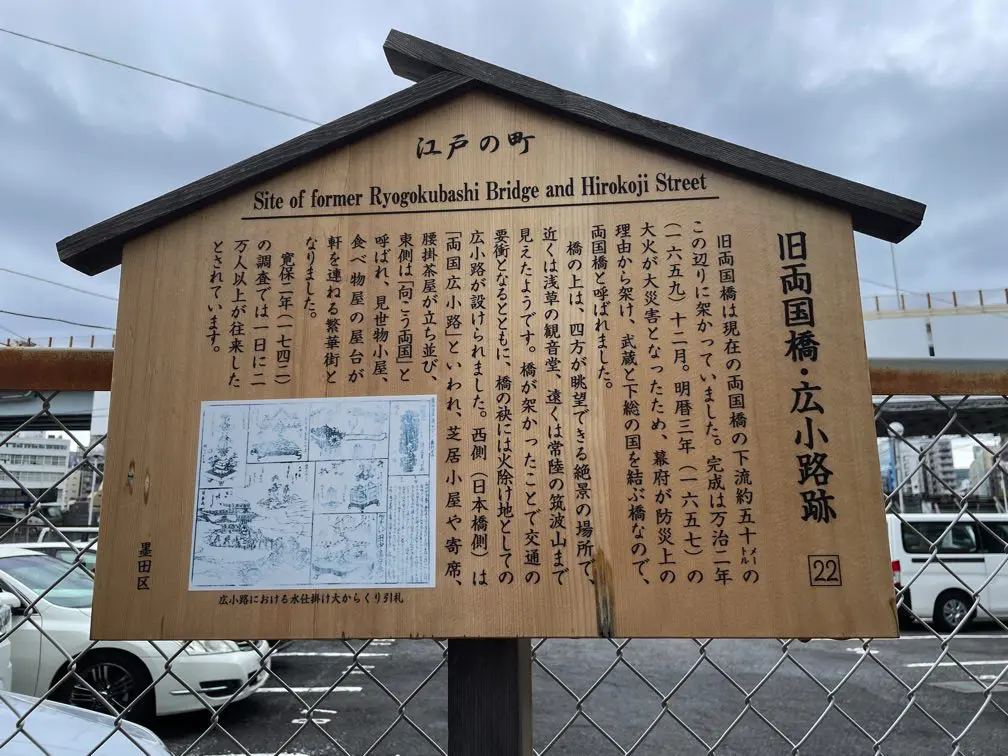 江戸の町
Site of former Ryogokubashi Bridge and Hirokoji Street
旧両国橋・広小路跡
22
旧両国橋は現在の両国橋の下流約五十㍍の
この辺りに架かっていました。完成は万治二年
(一六五九)十二月。明暦三年(一六五七)の
大火が大災害となったため、幕府が防災上の
理由から架け、武蔵と下総の国を結ぶ橋なので、
両国橋と呼ばれました。
橋の上は、四方が眺望できる絶景の場所で、
近くは浅草の観音堂、遠くは常陸の筑波山まで
見えたようです。橋が架かったことで交通の
要衝となるとともに、橋の袂には火除け地としての
広小路が設けられました。西側(日本橋側)は
「両国広小路」といわれ、芝居小屋や寄席、
腰掛茶屋が立ち並び、
東側は「向こう両国」と
呼ばれ、見世物小屋、
食べ物屋の屋台が
軒を連ねる繁華街と
なりました。
寛保二年(一七四二)
の調査では一日に二
万人以上が往来した
とされています。
広小路における水仕掛け大からくり引札
墨田区